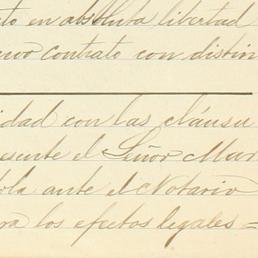 to en absoluta libertad
evo contrato con distin
idad con las cláusu
esente el Señor Mar
ante el Notario
ra los efectos legales =